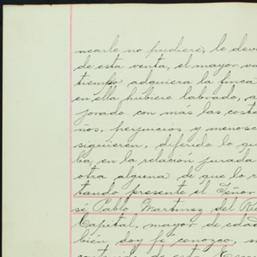 nearle no pudiere, le devo
de esta venta, el mayor va
tiempo adquiera la finca
en ella hubiere labrado, a
jorado con más las costa
ños, perjuicios y menosc
siguieren, diferido lo qu
ba en la relación jurada
otra alguna de que lo r
tando presente el Señor
sé Pablo Martinez del Rio
Capital, mayor de edad
bién doy fé conozco,